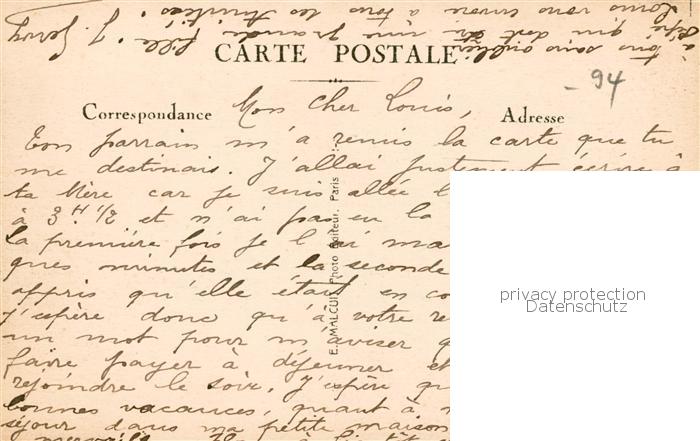 à tous sans oublier
Pépé qui doit être une grande fille. J. Gerry
Louis vous envoie à tous ses Amitiés
CARTE POSTALE
94
Correspondance
Adresse
Mon cher Louis,
Ton parrain m'a remis la carte que tu
me destinais. J'allai justement écrire à
ta Mère car je suis allée
à 3H 1/2 et n'ai pas eu la
La première fois je l'ai ma
ques minutes et la seconde
appris qu'elle était en co
J'espère donc qu'à votre re
un mot pour m'aviser q
faire payer à déjeuner et
rejoindre le soir. J'espère qu
bonnes vacances, quant à
séjour dans ma petite maison
E. MALCUIT, Photo Editeur, Paris
privacy protection
Datenschutz